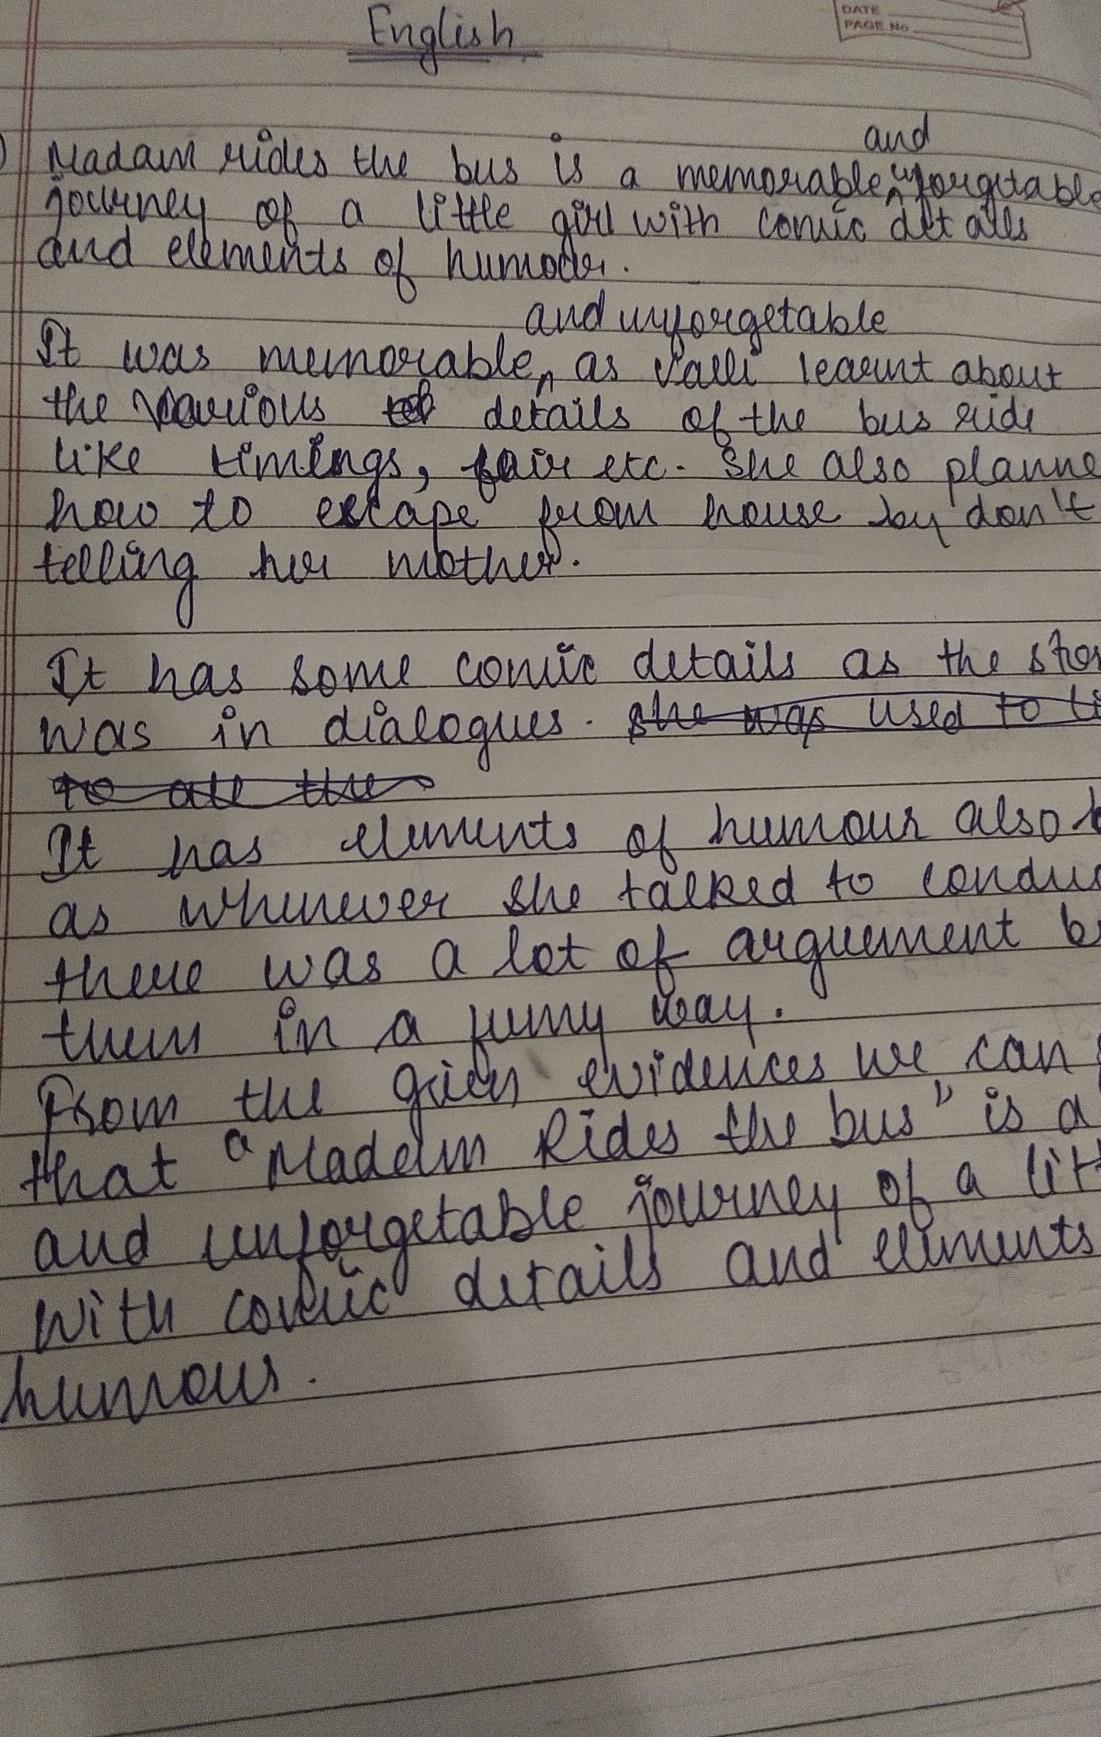 English
DATE
PAGE No
and
Madam rides the bus is a memorable, unforgetable
journey of a little girl with comic details
and elements of humour.
and unforgetable
It was memorable, as Valli learnt about
the various details of the bus ride
like timings, fair etc. She also planne
how to escape from house by don't
telling her mother.
It has some comic details as the stor
was in dialogues. she was used to li
to all the
It has elements of humour also b
as whenever she talked to conduc
there was a lot of arguement b
them in a funny way.
From the given evidences we can
that "Madam Rides the bus" is a
and unforgetable journey of a litt
with comic details and elements
humour.